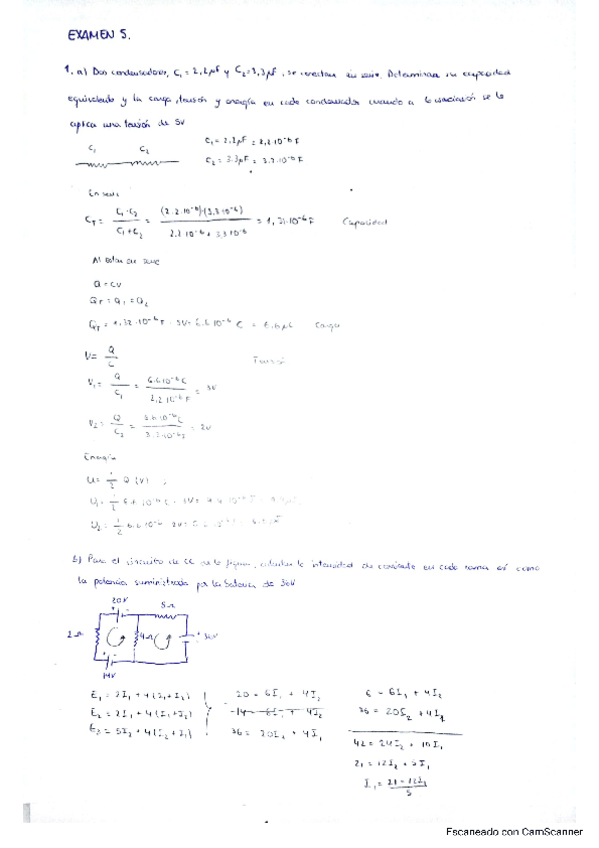 EXAMEN 5.
1. a) Dos condensadores, C₁ = 2,2μF y C₂ = 3,3μF, se conectan en serie. Determinar su capacidad
equivalente y la carga, tensión y energía en cada condensador cuando a la asociación se le
aplica una tensión de 5V
C₁ C₂
C₁ = 2.2μF = 2,2·10⁻⁶ F
C₂ = 3.3μF = 3.3·10⁻⁶ F
En serie
C_T = (C₁·C₂)/(C₁+C₂) = ((2.2·10⁻⁶)·(3.3·10⁻⁶))/(2.2·10⁻⁶ + 3.3·10⁻⁶) = 1,32·10⁻⁶ F Capacidad
Al estar en serie
Q = CV
Q_T = Q₁ = Q₂
Q_T = 1,32·10⁻⁶ F · 5V = 6.6·10⁻⁶ C = 6.6μC Carga
V = Q/C Tensión
V₁ = Q/C₁ = (6.6·10⁻⁶ C)/(2,2·10⁻⁶ F) = 3V
V₂ = Q/C₂ = (6.6·10⁻⁶ C)/(3.3·10⁻⁶ F) = 2V
Energía
U = 1/2 Q (V)
U₁ = 1/2 6.6·10⁻⁶ C · 3V =
U₂ = 1/2 6.6·10⁻⁶ · 2V =
b) Para el circuito de CC de la figura, calcular la intensidad de corriente en cada rama así como
la potencia suministrada por la batería de 36V
20V 5Ω
2Ω 4Ω 36V
14V
E₁ = 2I₁ + 4(I₁+I₂) 20 = 6I₁ + 4I₂ 6 = 6I₁ + 4I₂
E₂ = 2I₁ + 4(I₁+I₂) -14 = 6I₁ + 4I₂ 36 = 20I₂ + 4I₁
E₂ = 5I₂ + 4(I₂+I₁) 36 = 20I₂ + 4I₁ 42 = 24I₂ + 10I₁
21 = 12I₂ + 5I₁
I₁ = (21 - 12I₂)/5
Escaneado con CamScanner